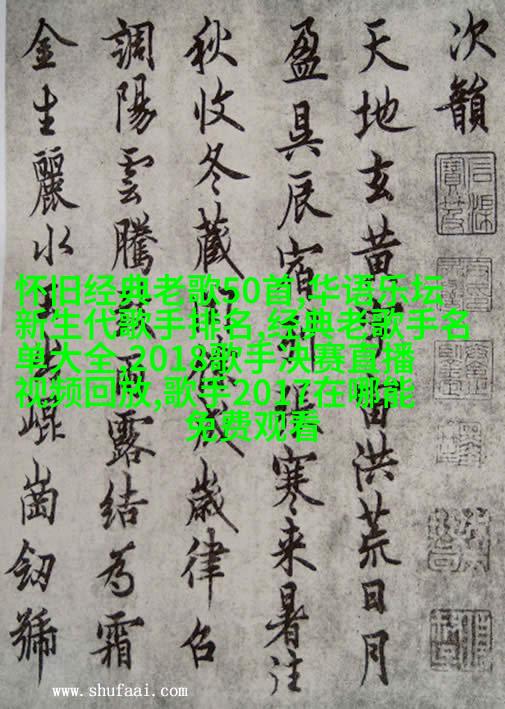 次韻
天地玄黄宙洪荒日月
盈昃辰宿張寒来暑往
秋收冬藏成歲律召
調陽雲騰露結為霜
金生麗水崑崗劒號
怀旧经典老歌50首,华语乐坛
新生代歌手排名,经典老歌手名
单大全,2018歌手决赛直播
视频回放,歌手2017在哪能
免费观看
www.shufaai.com